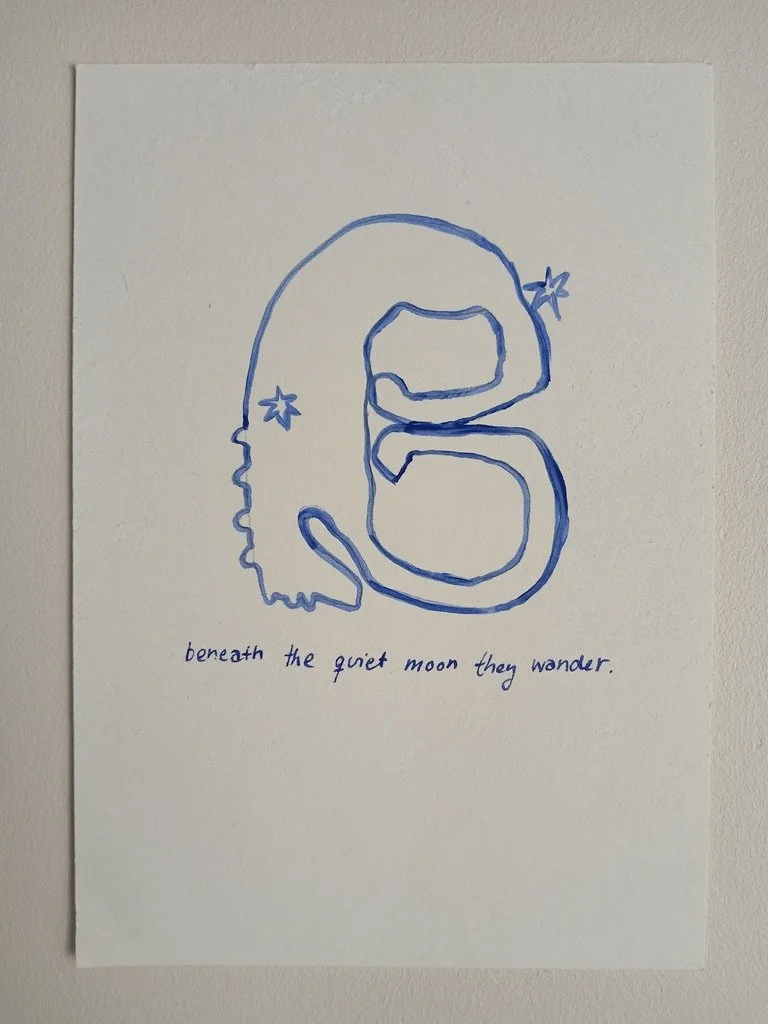 B
beneath the quiet moon they wander.